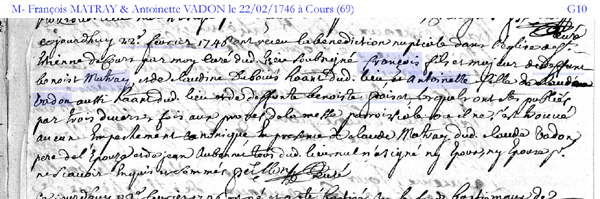 M- François MATRAY & Antoinette VADON le 22/02/1746 à Cours (69) G10
curé
cejourdhuy 22e fevrier 1746 ont receu la benediction nuptiale dans l'eglise de St
Etienne de Cours par moy curé dud. lieu soubsigné françois fils et majeur de deffunt
benoist Matray et de Claudine habitant dud. lieu et Antoinette fille de Claude
Vadon aussi habitant dud. lieu et de deffunte benoiste lesquels ont été publiés
par trois diverses fois aux prones de la messe parroissiale ou il ne s'est trouvé
aucun empechement canonique en presence de Claude Matray dud. Claude Vadon
pere de l'epouse et de jean Aubonnet tous dud. lieu qui n'ont signé ny epoux ny epouse pr.
ne scavoir enquis et sommés curé
22e fevrier 1746